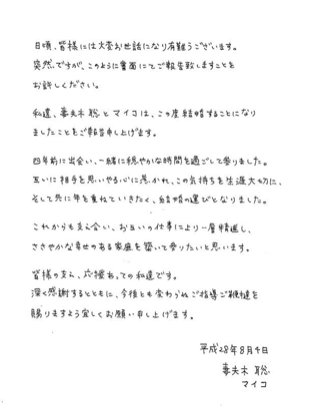 日頃、皆様には大変お世話になり有難うございます。
突然ですが、このように書面にてご報告致しますことを
お許しください。
私達、妻夫木 聡 と マイコ は、この度結婚することになり
ましたことをご報告申し上げます。
四年前に出会い、一緒に穏やかな時間を過ごして参りました。
互いに相手を思いやる心に惹かれ、この気持ちを生涯大切に、
そして共に年を重ねていきたく、結婚の運びとなりました。
これからも支え合い、お互いの仕事により一層精進し、
ささやかな幸せのある家庭を築いて参りたいと思います。
皆様の支え、応援あっての私達です。
深く感謝するとともに、今後とも変わらぬご指導ご鞭撻を
賜りますよう宜しくお願い申し上げます。
平成28年8月4日
妻夫木 聡
マイコ